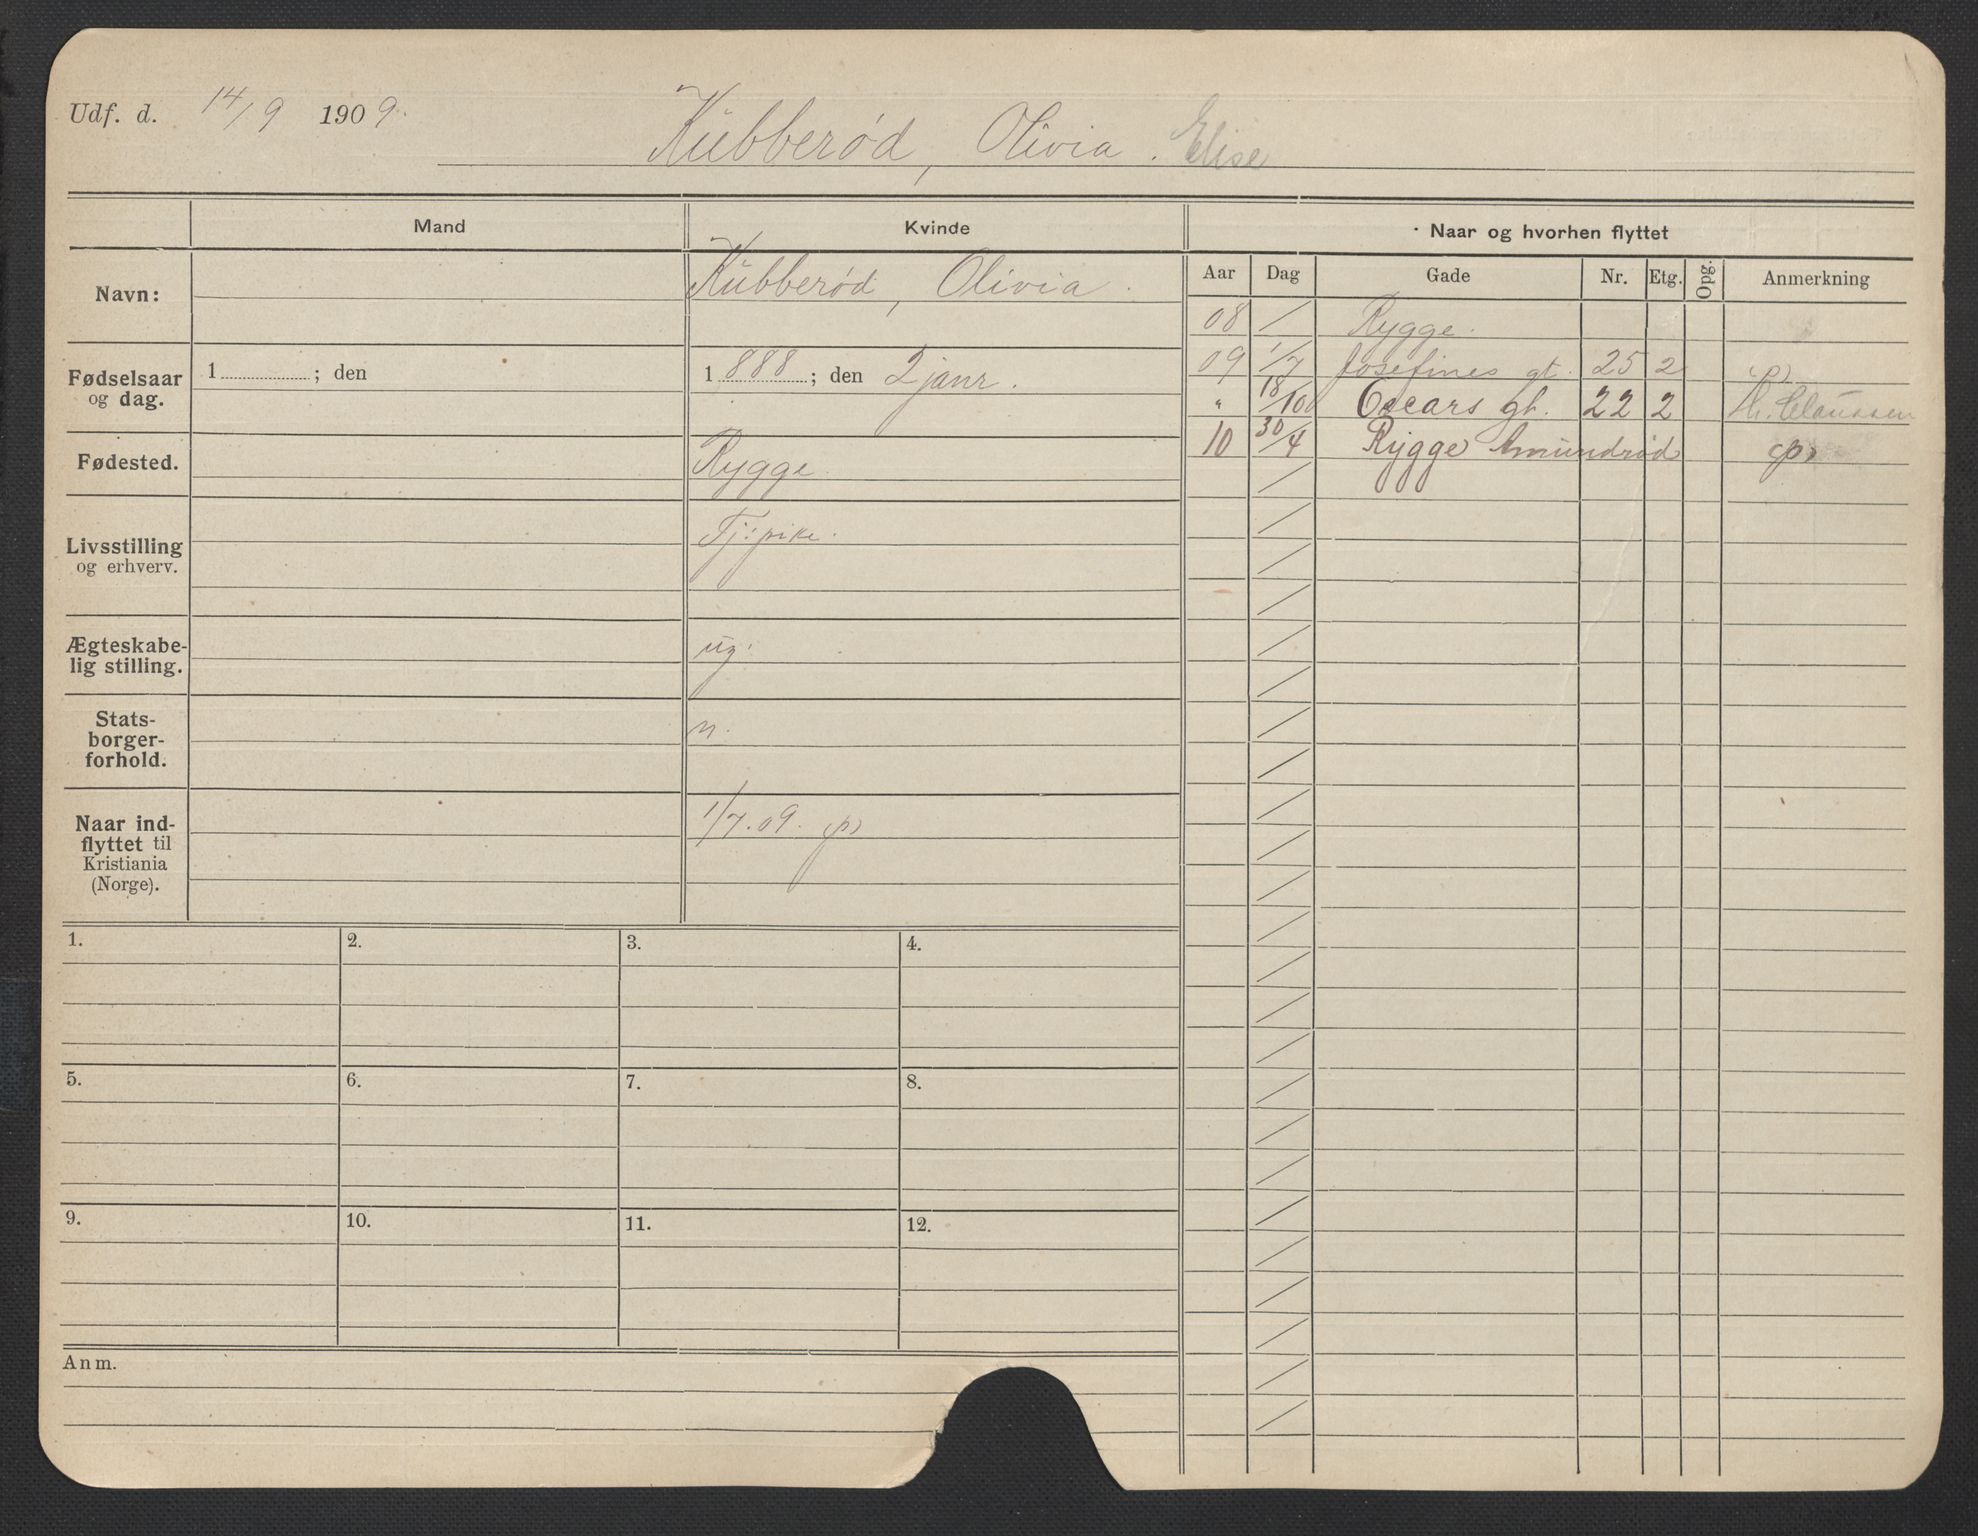 Udf. d. 14/9 1909.
Kubberød, Olivia. Elise
Mand
Kvinde
Naar og hvorhen flyttet
Navn:
Kubberød, Olivia.
Fødselsaar og dag.
1 ; den
1888 ; den 2 janr.
Fødested.
Rygge
Livsstilling og erhverv.
Tj: pike.
Ægteskabe-
lig stilling.
ug.
Stats-
borger-
forhold.
n.
Naar ind-
flyttet til
Kristiania
(Norge).
1/7.09. (p)
Aar Dag Gade Nr. Etg. Opg. Anmerkning
08 / Rygge.
09 1/7 Josefines gt. 25 2 (p)
" 18/10 Oscars gt. 22 2 Th. Claussen
10 30/4 Rygge Amundrød (p)
1. 2. 3. 4.
5. 6. 7. 8.
9. 10. 11. 12.
Anm.